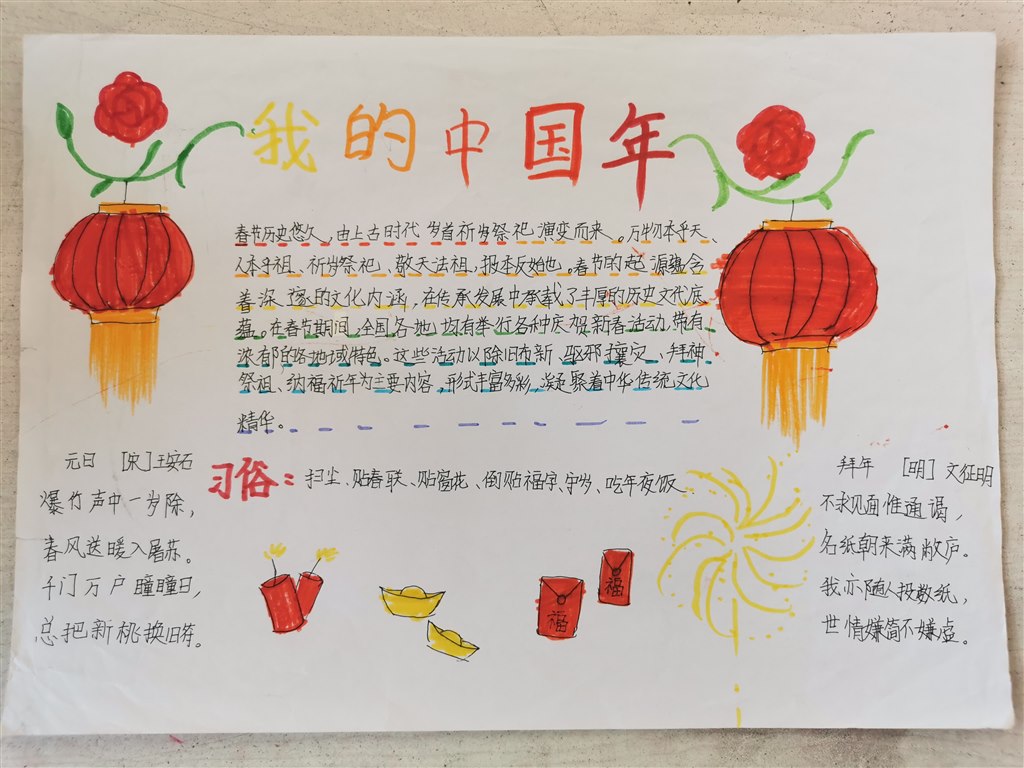 我的中国年
春节历史悠久，由上古时代岁首祈岁祭祀演变而来。万物本乎天、
人本乎祖、祈岁祭祀、敬天法祖，报本反始也。春节的起源蕴含
着深邃的文化内涵，在传承发展中承载了丰厚的历史文化底
蕴。在春节期间，全国各地均有举行各种庆贺新春活动，带有
浓郁的各地域特色。这些活动以除旧布新、驱邪攘灾、拜神
祭祖、纳福祈年为主要内容，形式丰富多彩，凝聚着中华传统文化
精华。
元日 [宋]王安石
爆竹声中一岁除，
春风送暖入屠苏。
千门万户瞳瞳日，
总把新桃换旧符。
习俗：扫尘、贴春联、贴窗花、倒贴福字、守岁、吃年夜饭
福
福
拜年 [明]文征明
不求见面惟通谒，
名纸朝来满敝庐。
我亦随人投数纸，
世情嫌简不嫌虚。